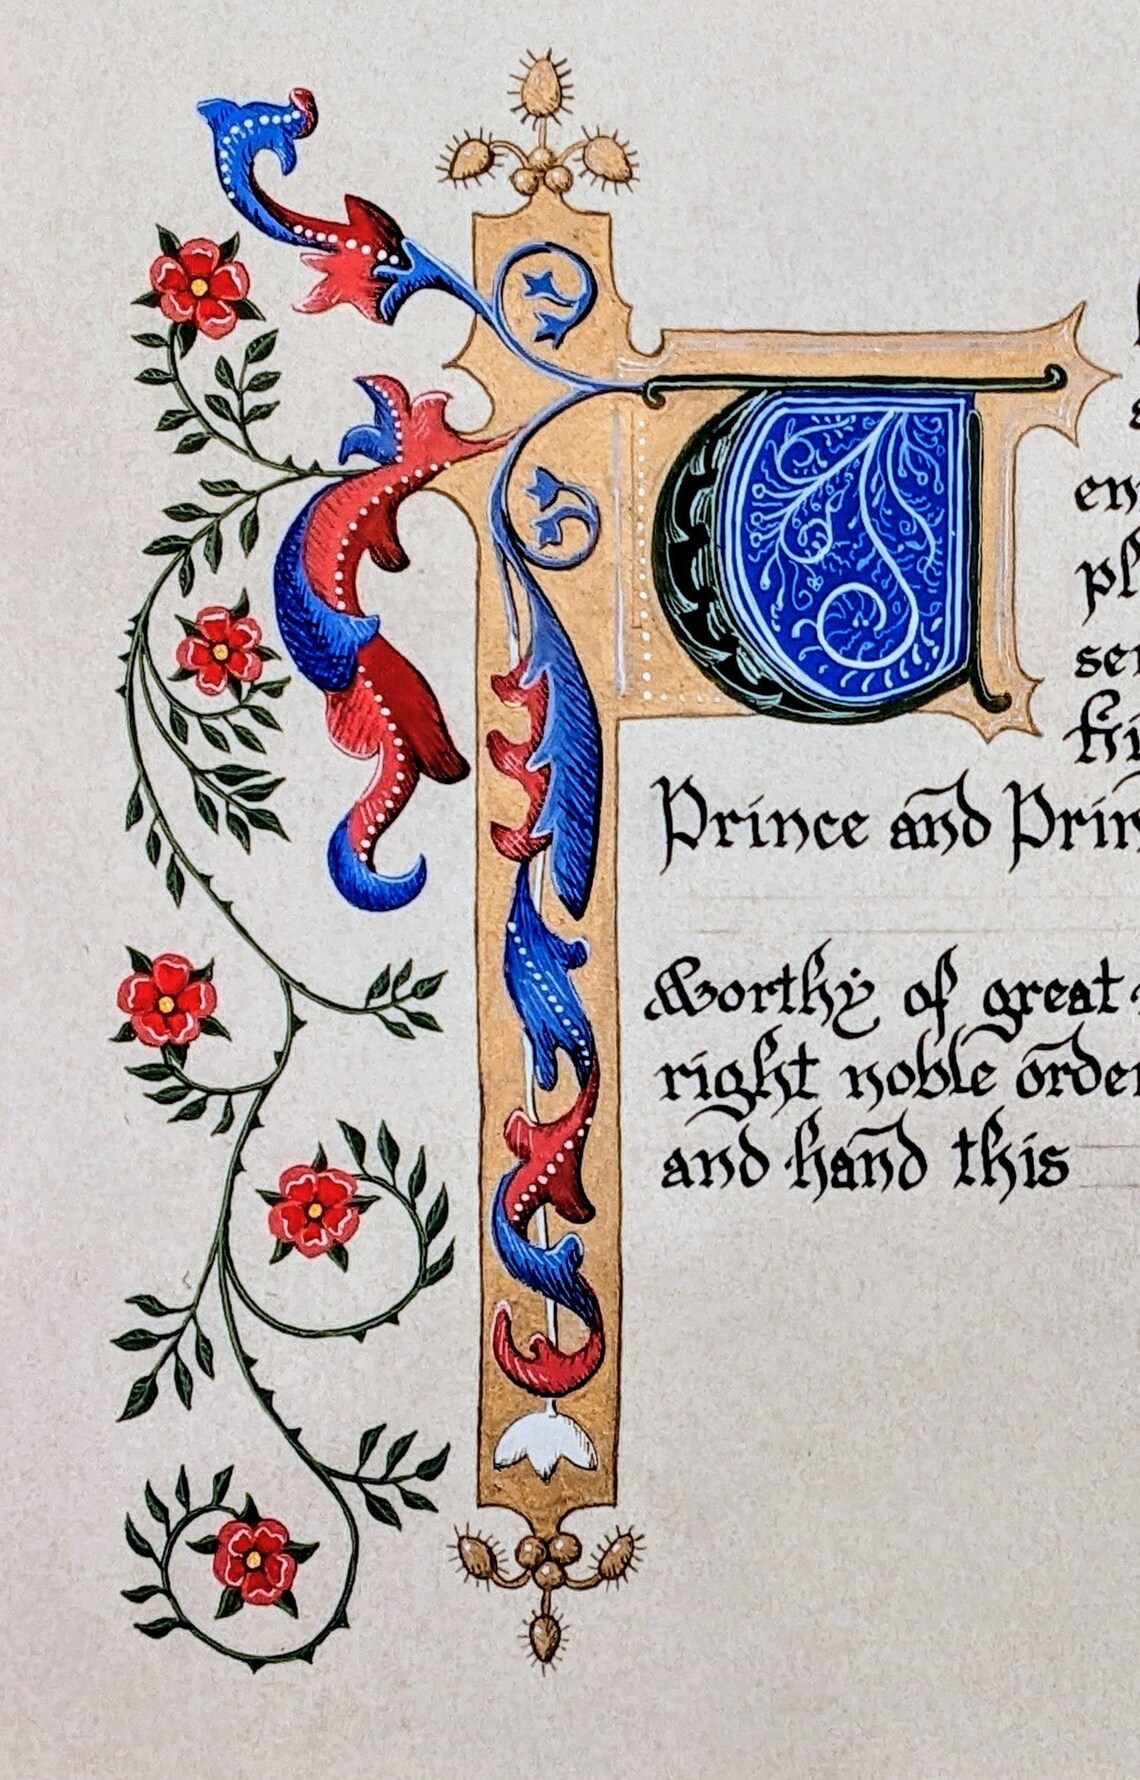 en
pl
ser
hi
Prince and Prin
Worthy of great
right noble order
and hand this